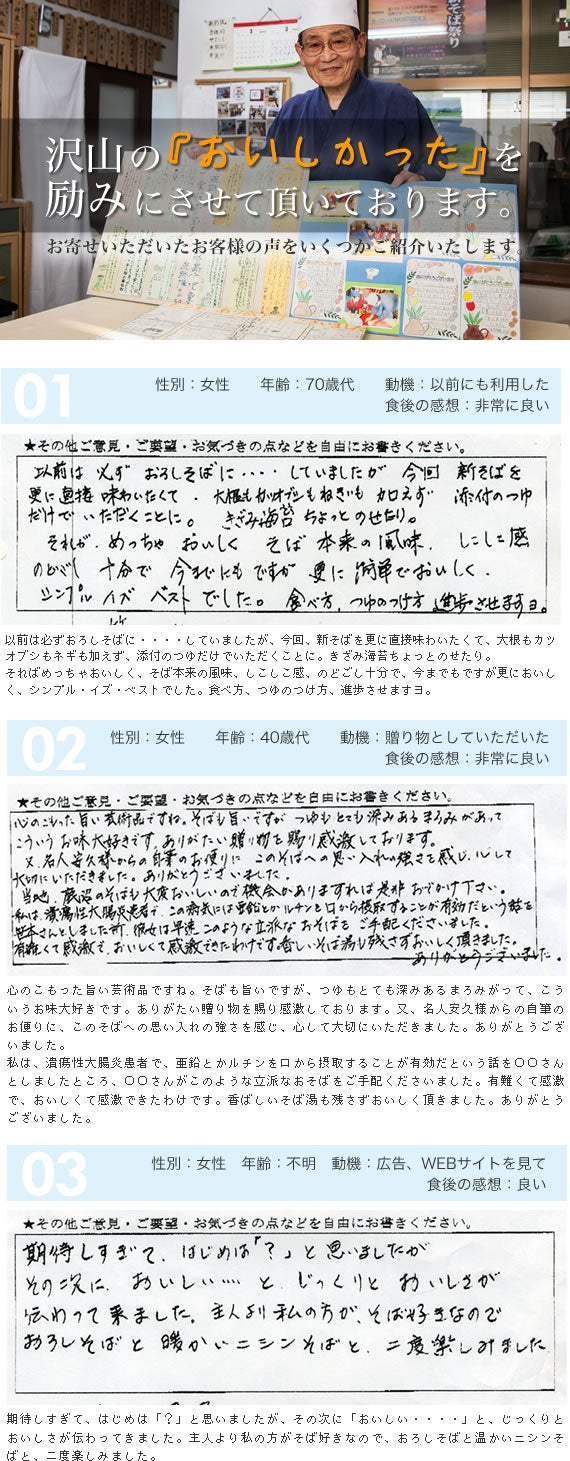 沢山の『おいしかった』を
励みにさせて頂いております。
お寄せいただいたお客様の声をいくつかご紹介いたします。
01
性別：女性　年齢：70歳代　動機：以前にも利用した
食後の感想：非常に良い
★その他ご意見・ご要望・お気づきの点などを自由にお書きください。
以前は 必ず おろしそばに・・・・していましたが 今回 新そばを
更に直接 味わいたくて、大根もカツオブシもねぎも加えず 添付のつゆ
だけでいただくことに。きざみ海苔ちょっとのせたり。
それが、めっちゃ おいしく そば本来の風味、しこしこ感
のどごし 十分で 今までにもですが 更に 簡単でおいしく、
シンプル イズ ベストでした。食べ方、つゆのつけ方、進歩させますヨ。
以前は必ずおろしそばに・・・・していましたが、今回、新そばを更に直接味わいたくて、大根もカツ
オブシもネギも加えず、添付のつゆだけでいただくことに。きざみ海苔ちょっとのせたり。
そればめっちゃおいしく、そば本来の風味、しこしこ感、のどごし十分で、今までもですが更においし
く、シンプル・イズ・ベストでした。食べ方、つゆのつけ方、進歩させますヨ。
02
性別：女性　年齢：40歳代　動機：贈り物としていただいた
食後の感想：非常に良い
★その他ご意見・ご要望・お気づきの点などを自由にお書きください。
心のこもった旨い芸術品ですね。そばも旨いですが つゆもとても深みあるまろみがあって
こういうお味大好きです。ありがたい贈り物を賜り感激しております。
又、名人安久様からの自筆のお便りに このそばへの思い入れの強さを感じ、心して
大切にいただきました。ありがとうございました。
当地、のそばも大変おいしいので機会がありますれば是非 おでかけ下さい。
私は、潰瘍性大腸炎患者で、この病気には亜鉛とかルチンを口から摂取することが有効だという話を
笹本さんとしました所、彼女は早速 このような立派な おそばを ご手配くださいました。
有難くて感激で、おいしくて感激できたわけです。香しいそば湯も残さずおいしく頂きました。
ありがとうございました。
心のこもった旨い芸術品ですね。そばも旨いですが、つゆもとても深みあるまろみがって、こう
いうお味大好きです。ありがたい贈り物を賜り感激しております。又、名人安久様からの自筆の
お便りに、このそばへの思い入れの強さを感じ、心して大切にいただきました。ありがとうござ
いました。
私は、潰瘍性大腸炎患者で、亜鉛とかルチンを口から摂取することが有効だという話を〇〇さん
としましたところ、〇〇さんがこのような立派なおそばをご手配くださいました。有難くて感激
で、おいしくて感激できたわけです。香ばしいそば湯も残さずおいしく頂きました。ありがとう
ございました。
03
性別：女性　年齢：不明　動機：広告、WEBサイトを見て
食後の感想：良い
★その他ご意見・ご要望・お気づきの点などを自由にお書きください。
期待しすぎて、はじめは「？」と思いましたが
その次に、おいしい・・・・と、じっくりと おいしさが
伝わって来ました。主人より私の方が、そば好きなので
おろしそばと 暖かいニシンそばと、二度楽しみました
期待しすぎて、はじめは「？」と思いましたが、その次に「おいしい・・・・」と、じっくりと
おいしさが伝わってきました。主人より私の方がそば好きなので、おろしそばと温かいニシンそ
ばと、二度楽しみました。